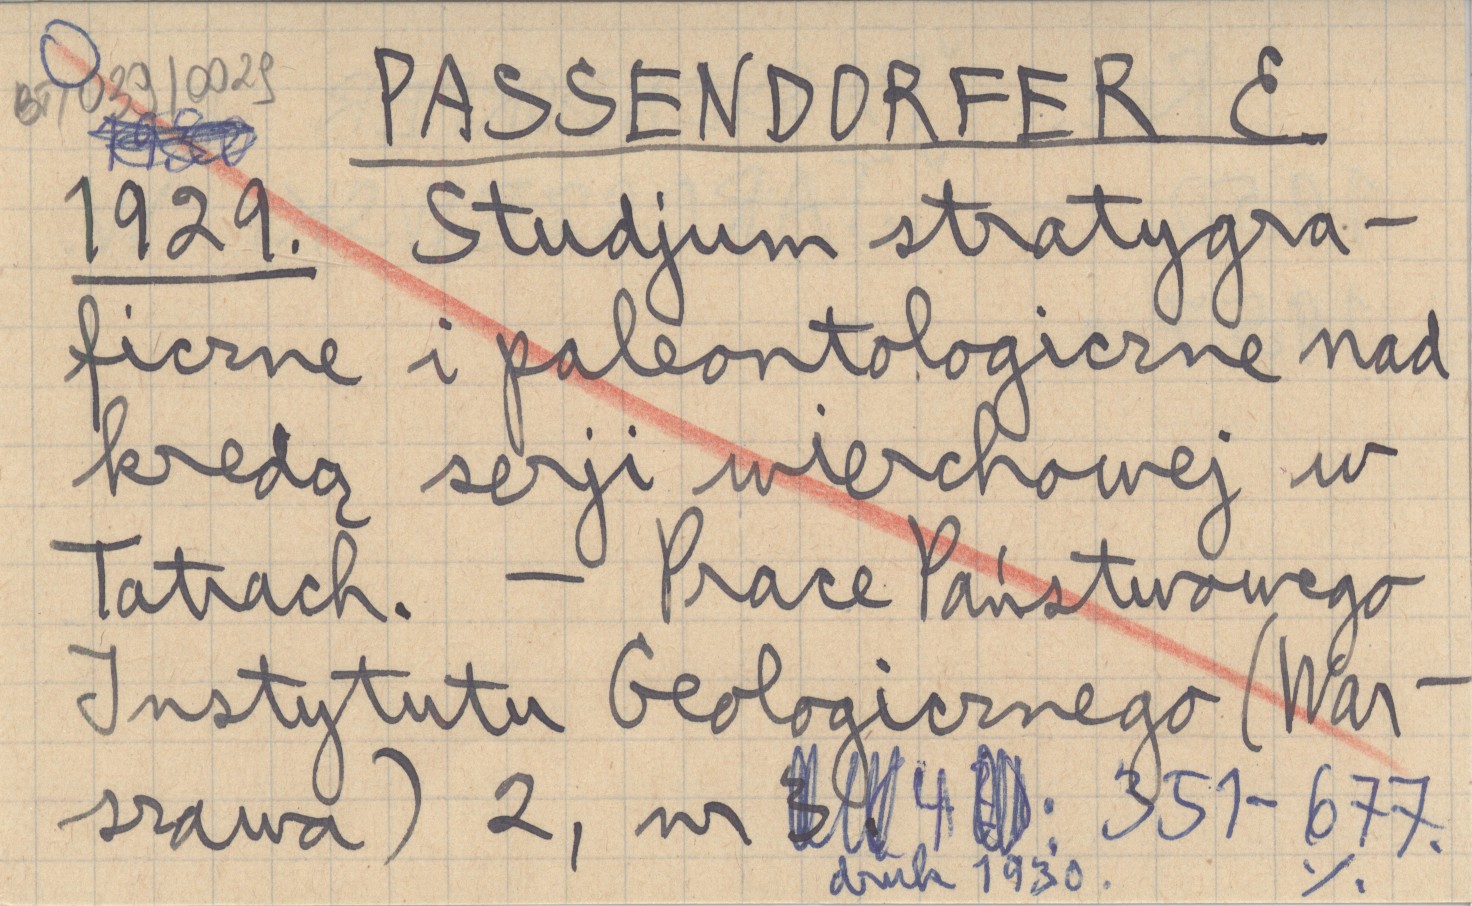 PASSENDORFER E.
1929. Studjum stratygra-
ficzne i paleontologiczne nad
kredą serji wierchowej w
Tatrach. — Prace Państwowego
Instytutu Geologicznego (War-
szawa) 2, nr 4 : 351-677.
druk 1930. ·/.